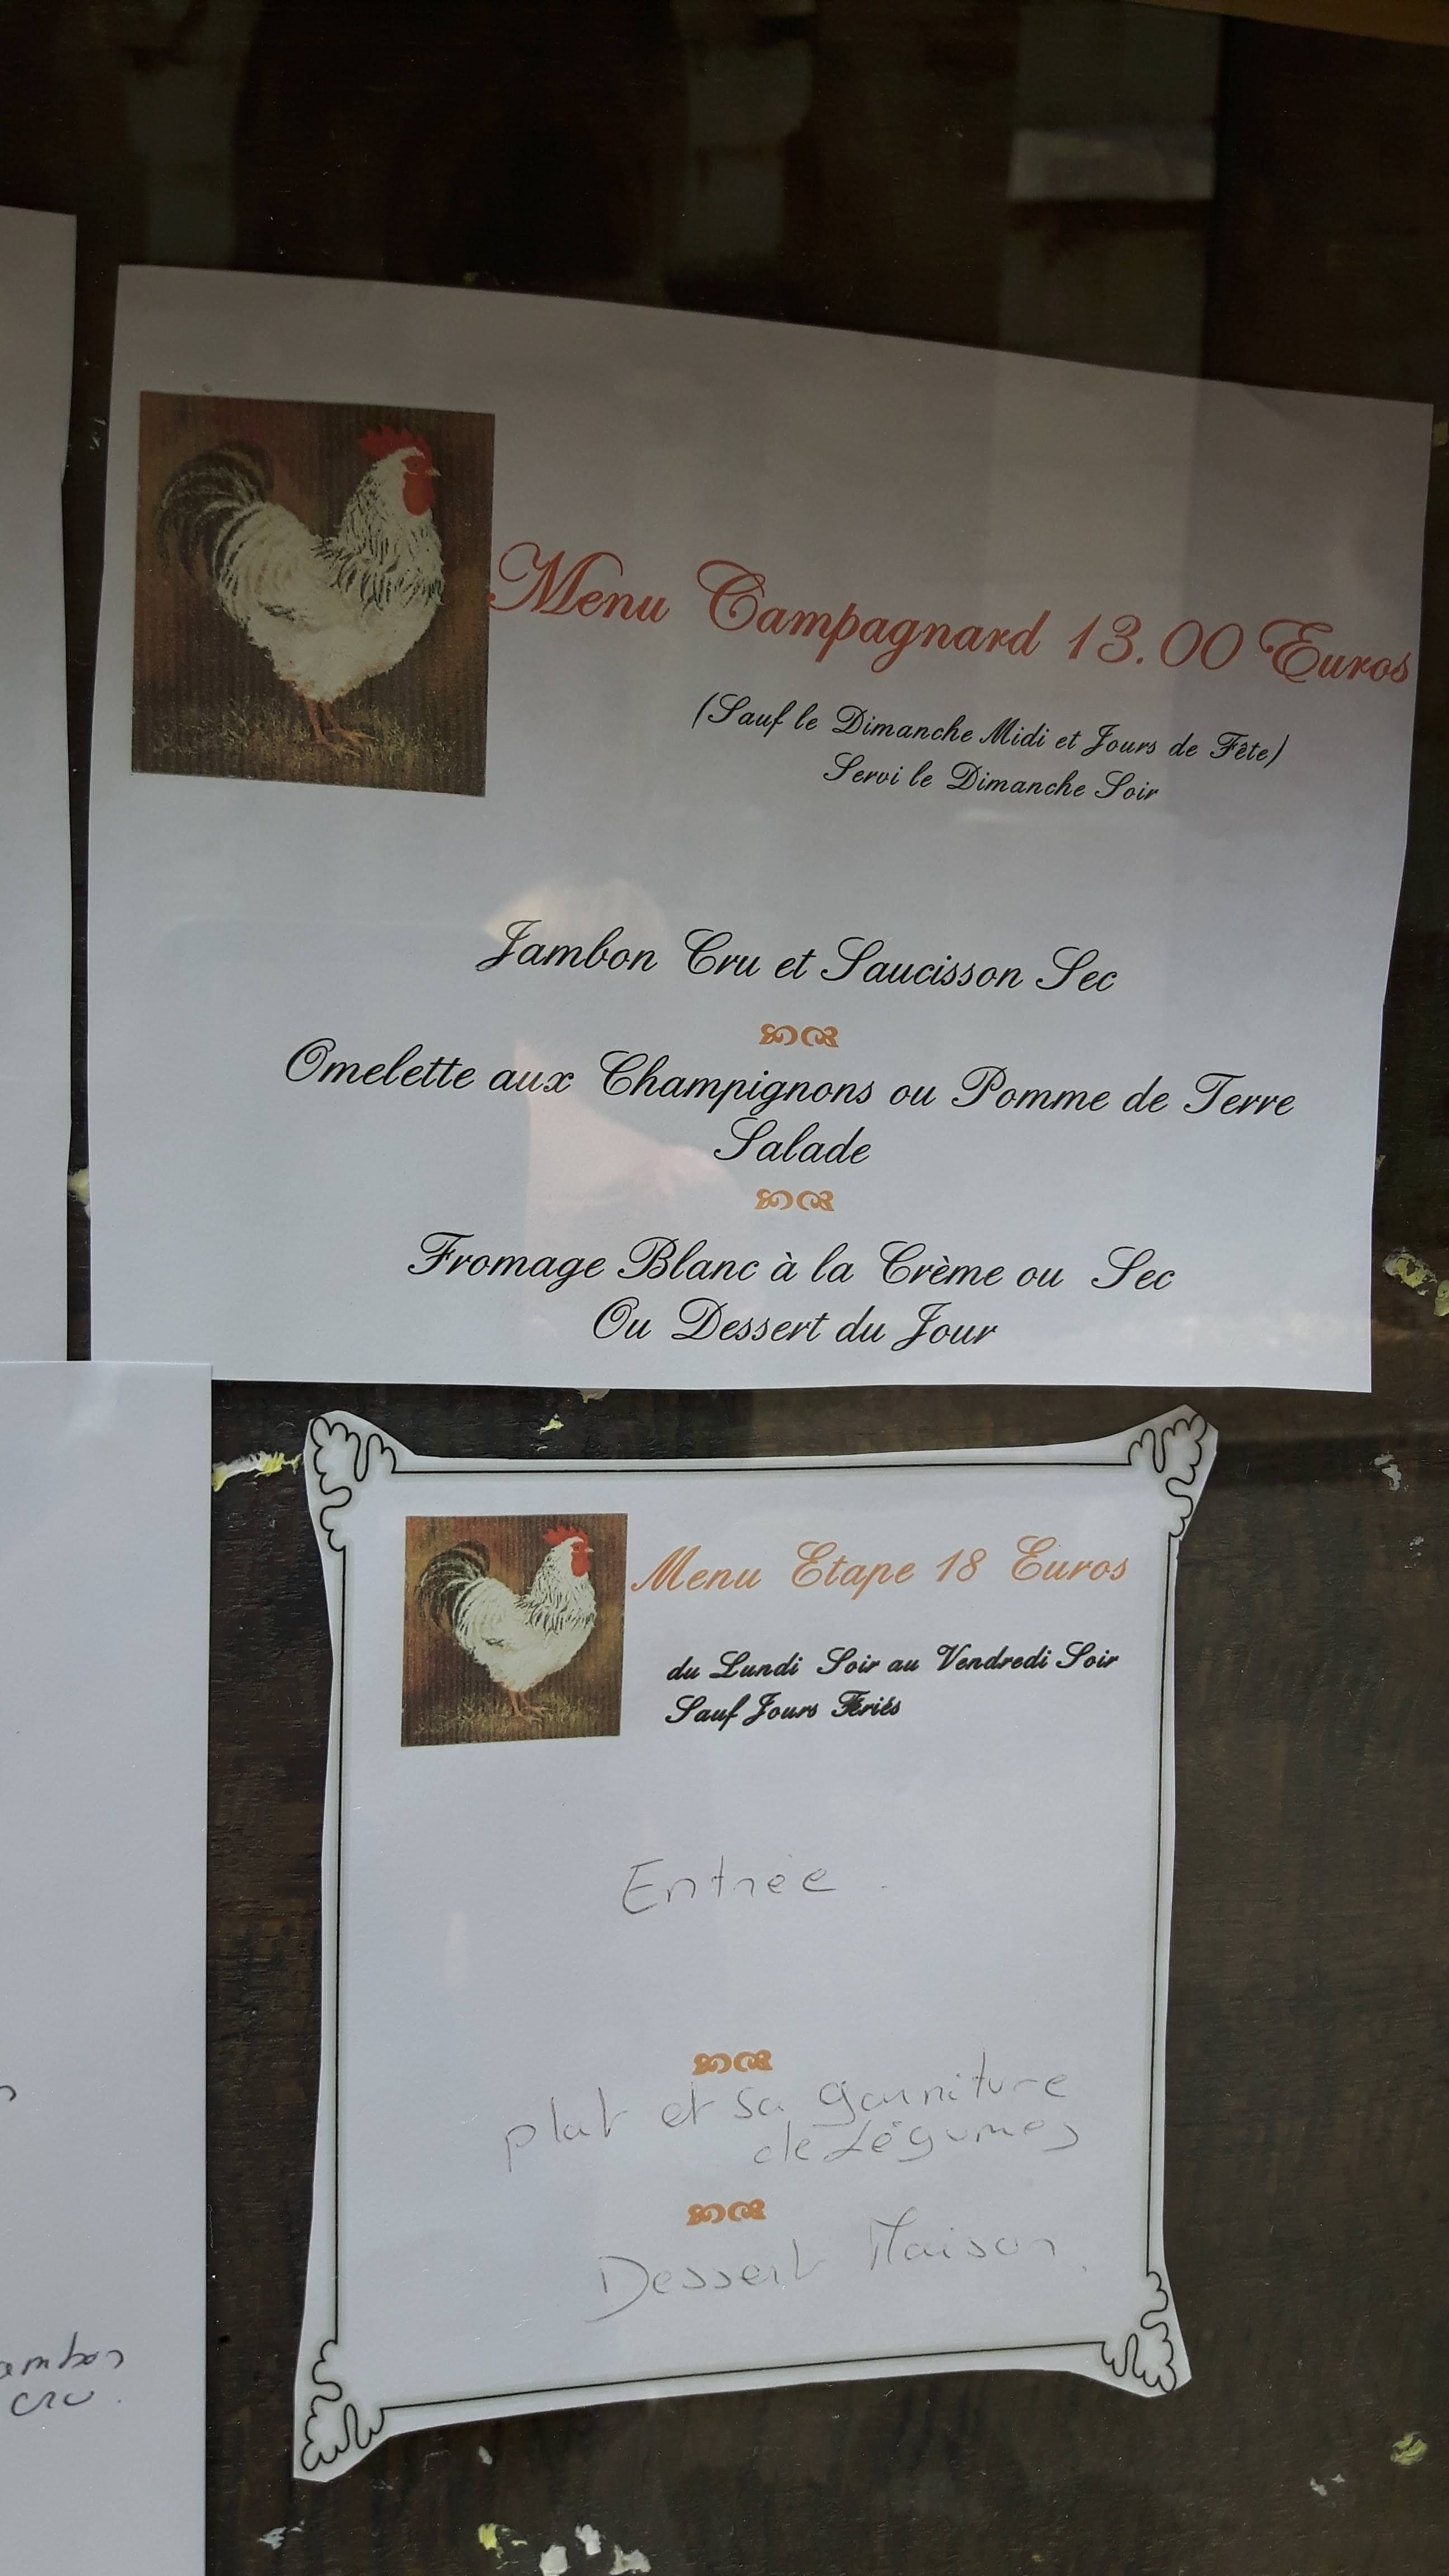 Menu Campagnard 13.00 Euros
(Sauf le Dimanche Midi et Jours de Fête)
Servi le Dimanche Soir
Jambon Cru et Saucisson Sec
Omelette aux Champignons ou Pomme de Terre
Salade
Fromage Blanc à la Crème ou Sec
Ou Dessert du Jour
Menu Etape 18 Euros
du Lundi Soir au Vendredi Soir
Sauf Jours Fériés
Entrée.
plat et sa garniture
de Légumes
Dessert Maison.
ambon
cru.